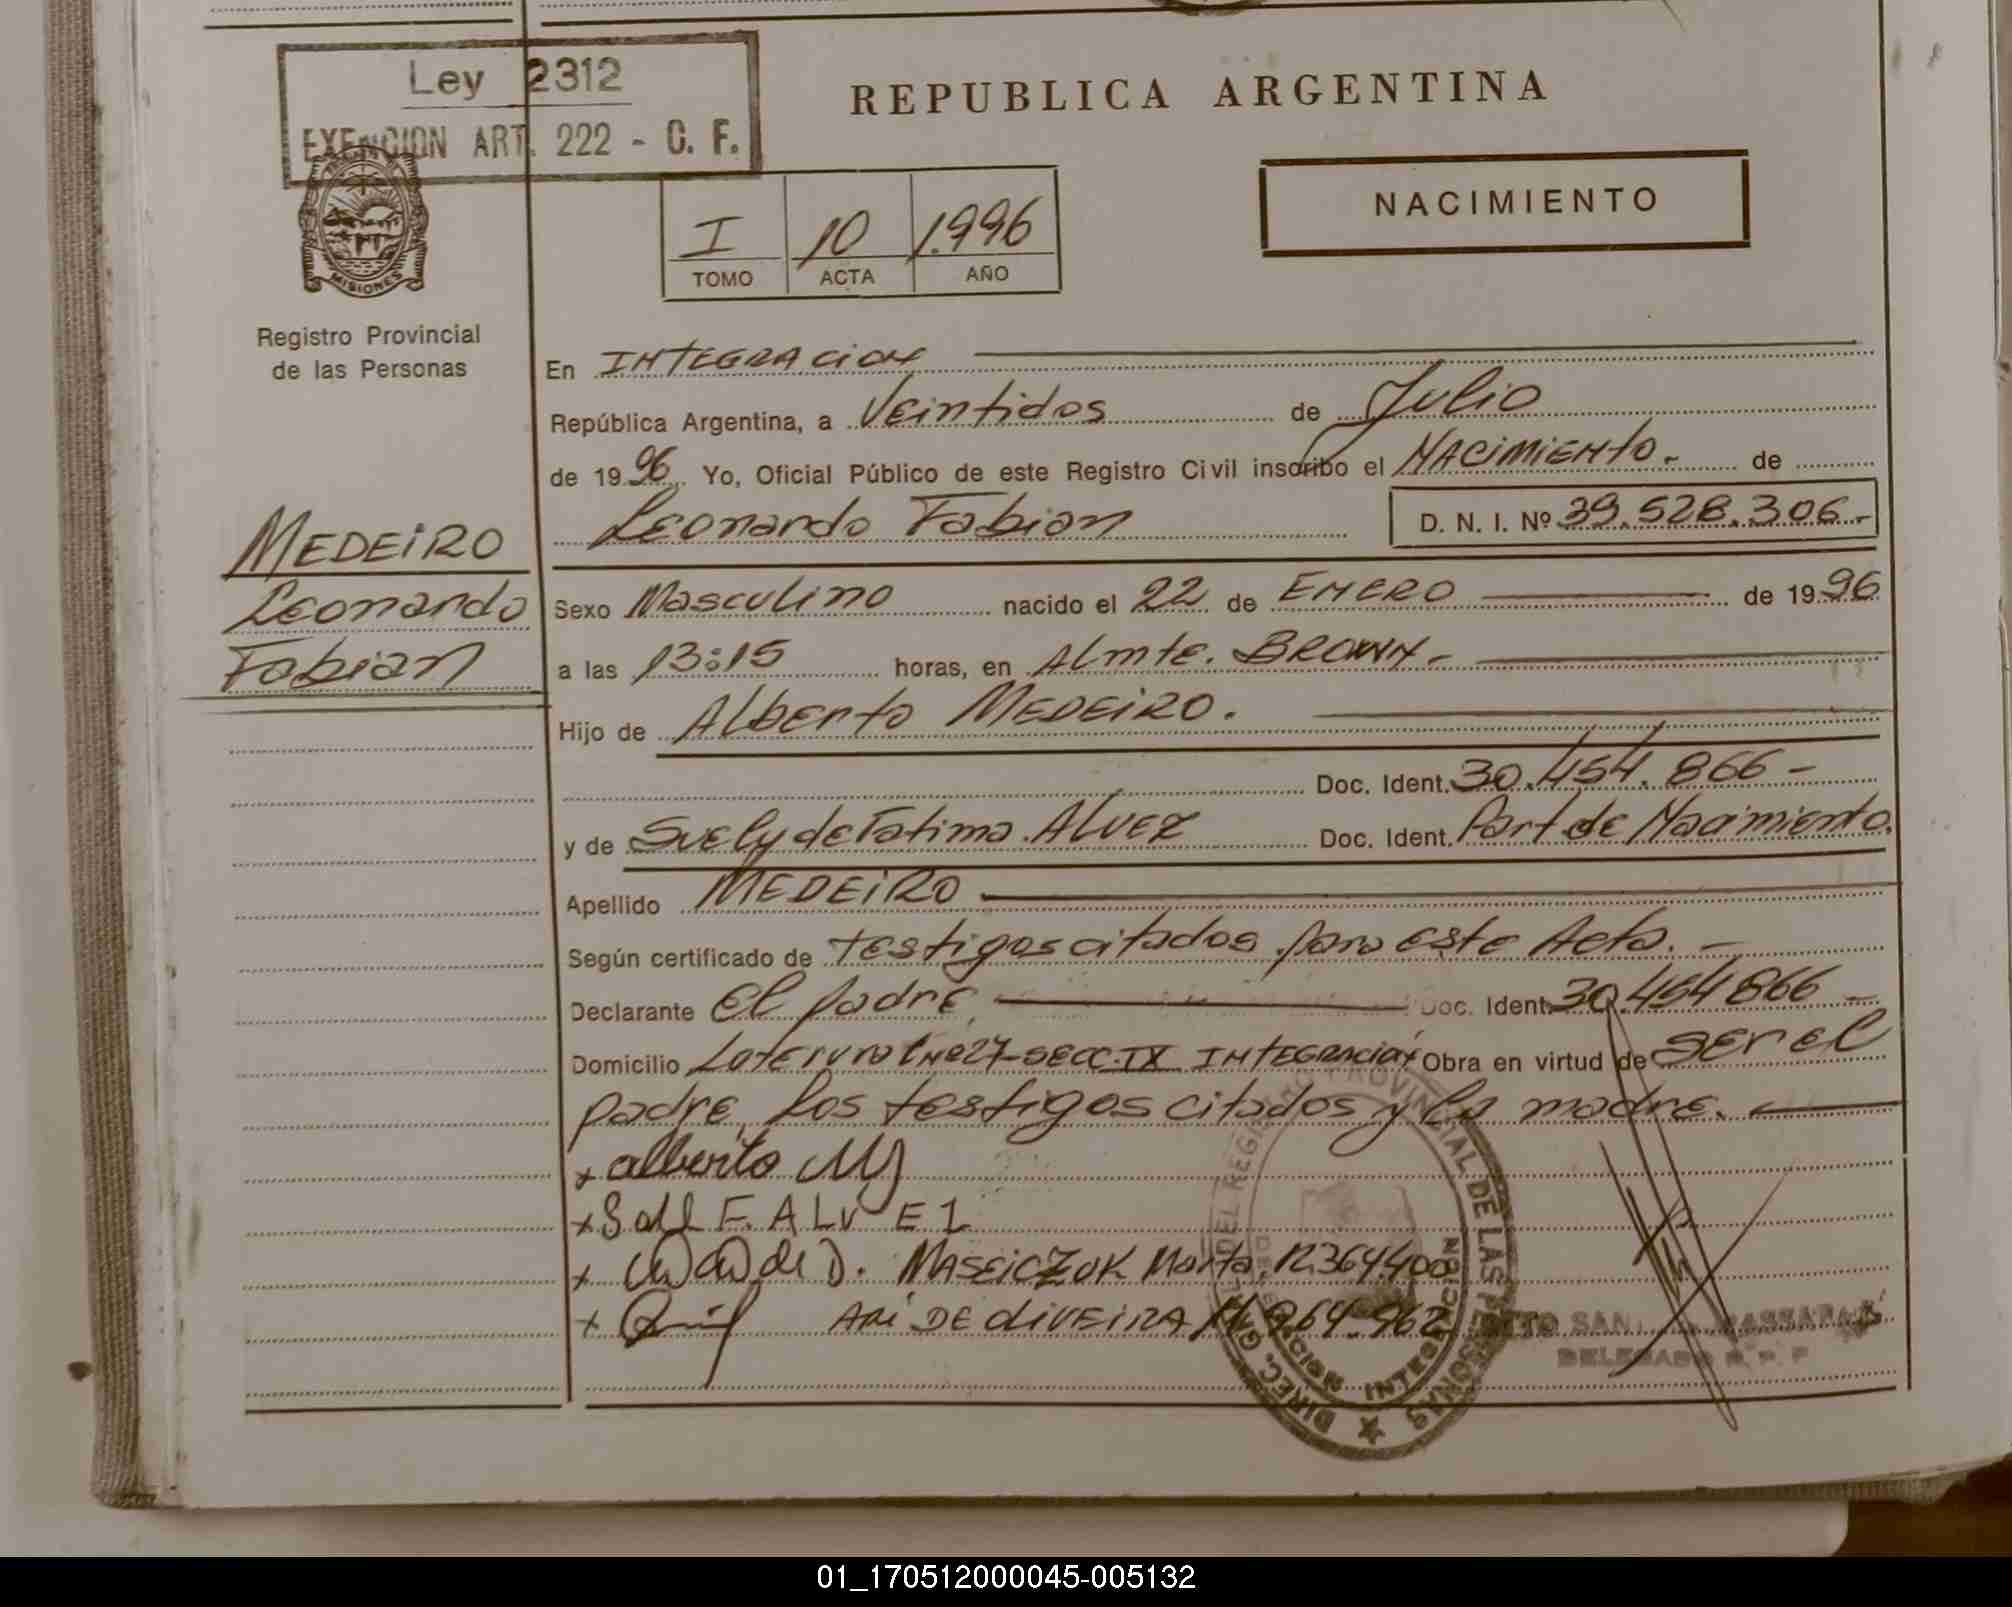 Ley 2312
EXENCION ART. 222 - C. F.
REPUBLICA ARGENTINA
NACIMIENTO
I 10 1.996
TOMO ACTA AÑO
MISIONES
Registro Provincial
de las Personas
En INTEGRACION
República Argentina, a Veintidos de Julio
de 19 96 Yo, Oficial Público de este Registro Civil inscribo el NACIMIENTO.- de
Leonardo Fabian D. N. I. Nº 39.528.306.-
MEDEIRO
Leonardo
Fabian
Sexo Masculino nacido el 22 de ENERO de 19 96
a las 13:15 horas, en Almte. BROWN.-
Hijo de Alberto MEDEIRO.
Doc. Ident. 30.454.866-
y de Suely de Fatima ALVEZ Doc. Ident. Part de Nacimiento.
Apellido MEDEIRO
Según certificado de testigos citados para este Acto.-
Declarante El padre, Doc. Ident. 30.454866-
Domicilio Lote rural Nº27-SECC.IX INTEGRACION Obra en virtud de ser el
padre, los testigos citados y la madre.
x alberto
x F. ALVEZ
x MASEICZUK Marta. 12.364.400
x ARI DE OLIVEIRA 964.962
DIREC. GRAL. DEL REGISTRO PROVINCIAL DE LAS PERSONAS
INTEGRACION
DELEGADO R. P. P.
01_170512000045-005132